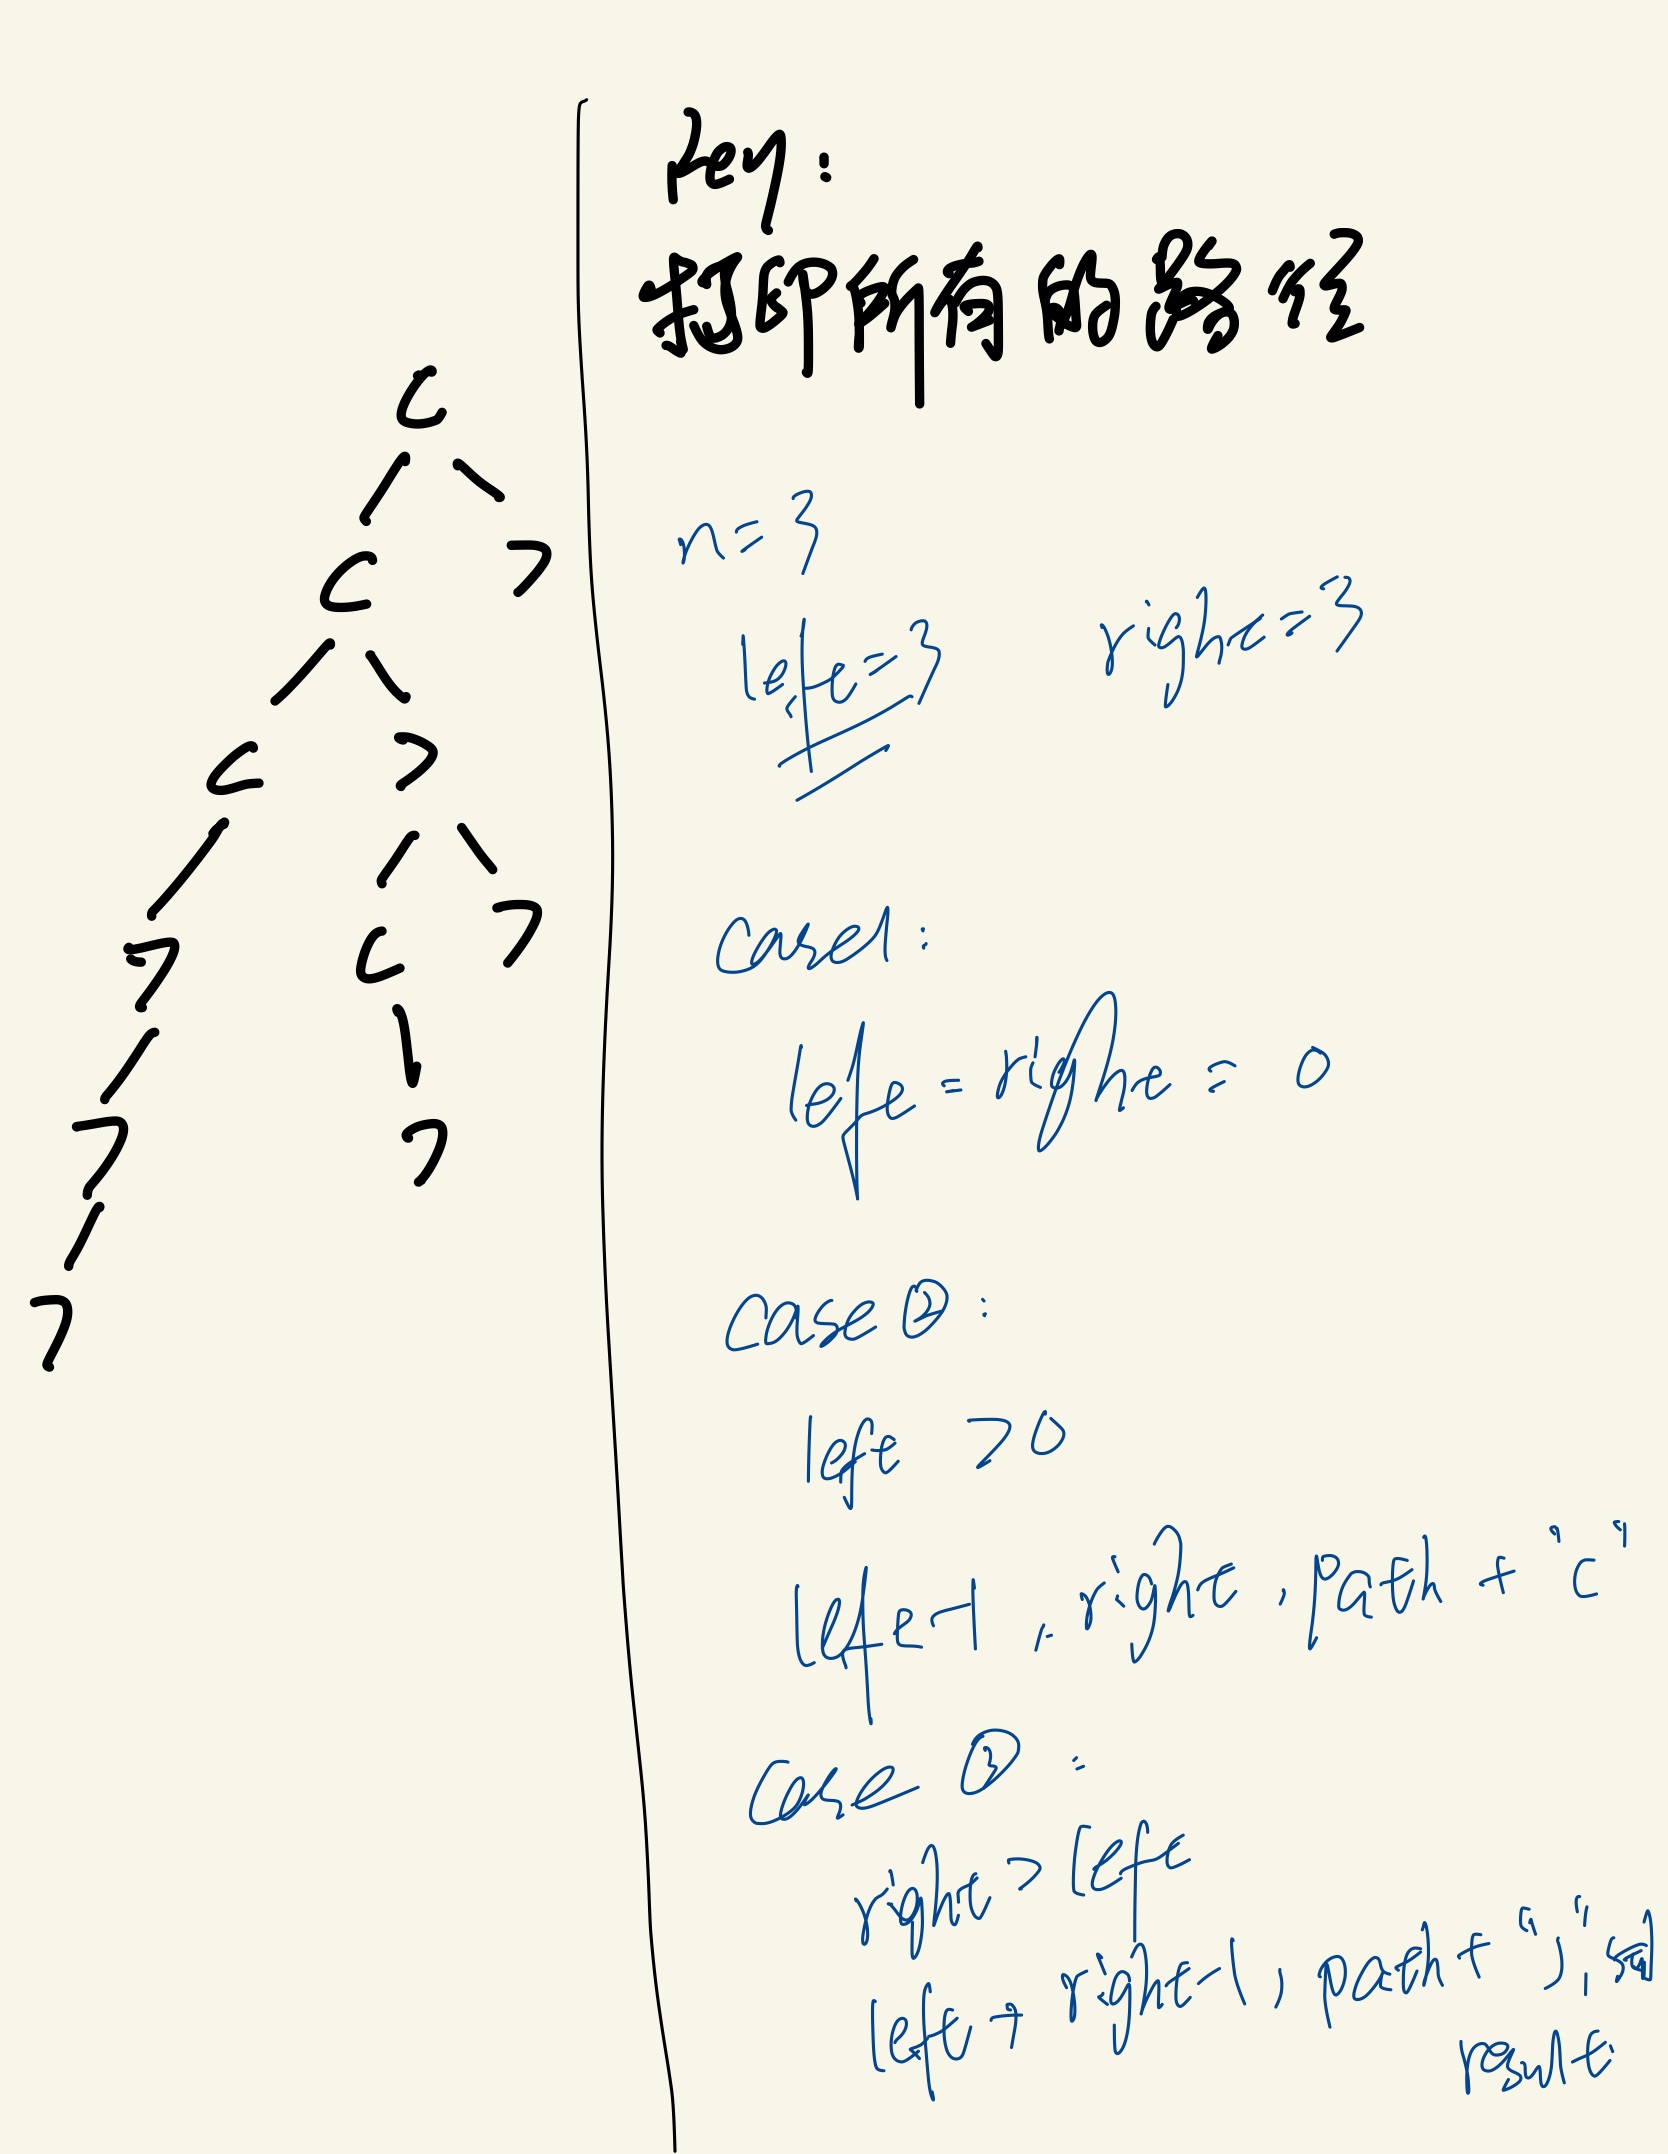 (
( )
( )
) ( )
) )
)
key:
打印所有的路径
n=3
left=3 right=3
case1:
left = right = 0
case ②:
left >0
left-1, right, path + "("
case ③:
right > left
left, right-1, path + ")",
result